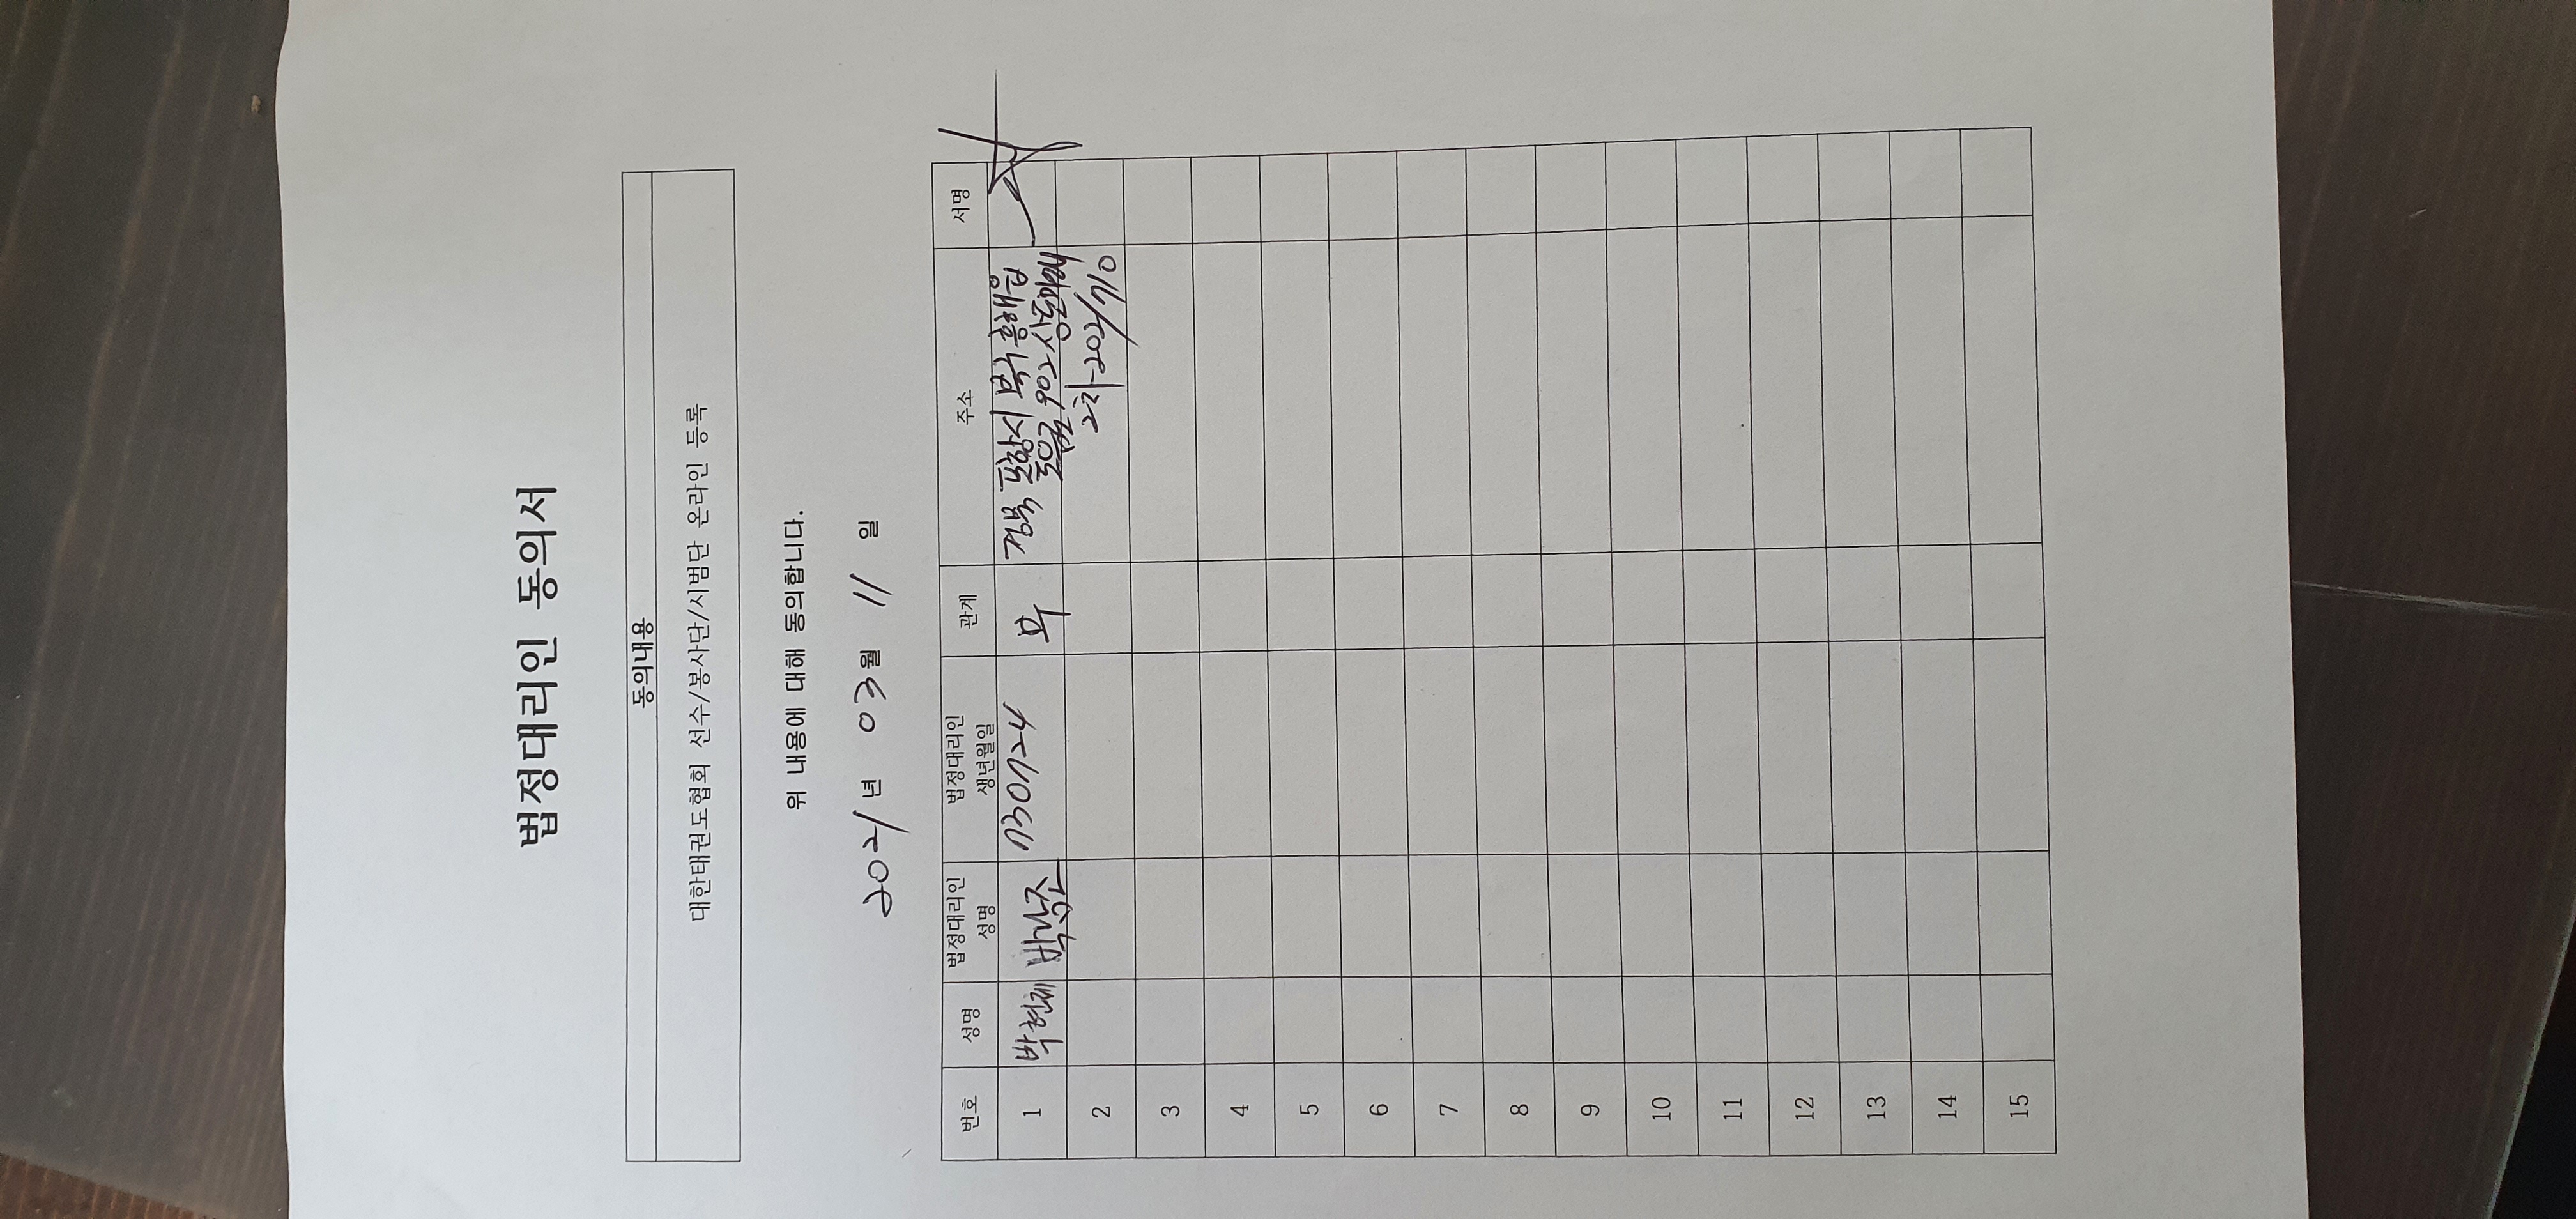 법정대리인 동의서
동의내용
대한태권도협회 선수/봉사단/시범단 온라인 등록
위 내용에 대해 동의합니다.
2021년 03월 11일
번호 성명 법정대리인 성명 법정대리인 생년월일 관계 주소 서명
1 박현제 730724 부 경북 포항시 북구 흥해읍
902 상도
2차 202/710
2
3
4
5
6
7
8
9
10
11
12
13
14
15